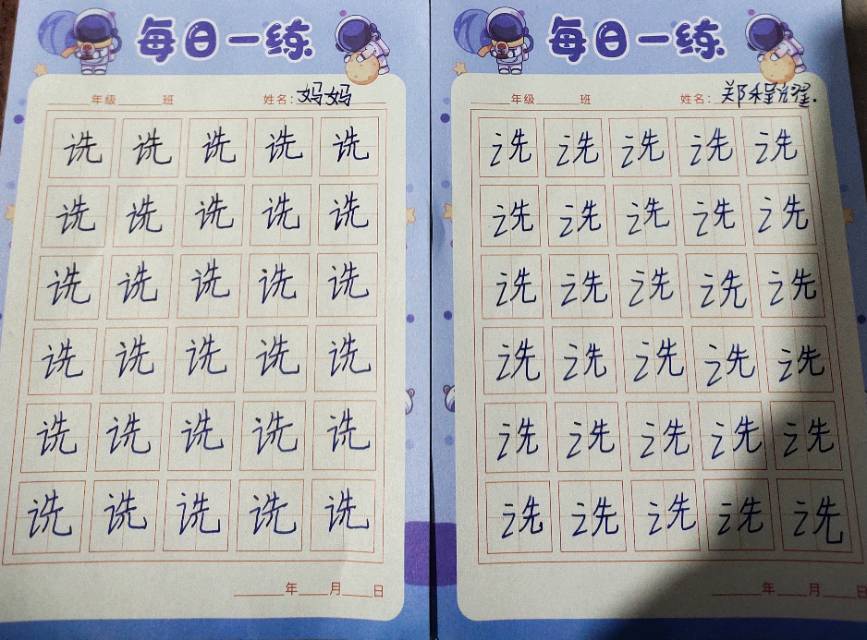 每日一练
年级 班 姓名: 妈妈
诜 诜 诜 诜 诜
诜 诜 诜 诜 诜
诜 诜 诜 诜 诜
诜 诜 诜 诜 诜
诜 诜 诜 诜 诜
诜 诜 诜 诜 诜
年 月 日
每日一练
年级 班 姓名: 郑程
诜 诜 诜 诜 诜
诜 诜 诜 诜 诜
诜 诜 诜 诜 诜
诜 诜 诜 诜 诜
诜 诜 诜 诜 诜
诜 诜 诜 诜 诜
年 月 日